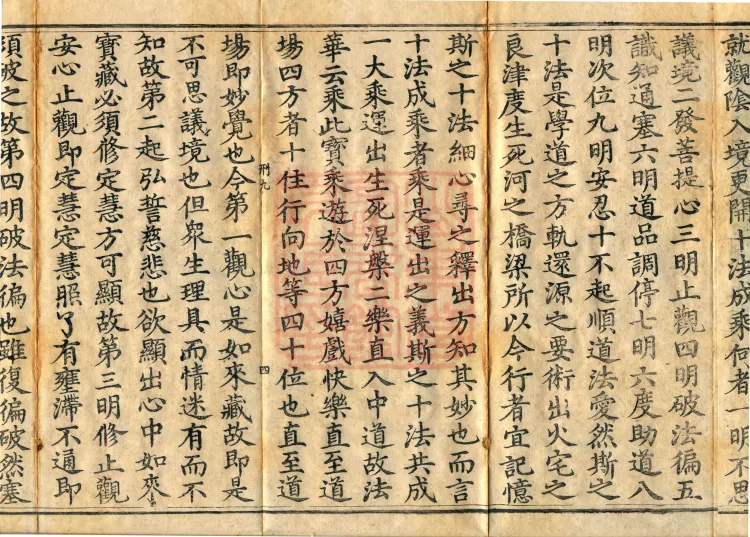 就觀陰入境更開十法成乘何者一明不思
議境二發菩提心三明止觀四明破法徧五
識知通塞六明道品調停七明六度助道八
明次位九明安忍十不起順道法愛然斯之
十法是學道之方軌還源之要術出火宅之
良津度生死河之橋梁所以今行者宜記憶
斯之十法細心尋之釋出方知其妙也而言
十法成乘者乘是運出之義斯之十法共成
一大乘運出生死涅槃二樂直入中道故法
華云乘此寶乘遊於四方嬉戲快樂直至道
場四方者十住行向地等四十位也直至道
刑九
四
場即妙覺也今第一觀心是如來藏故即是
不可思議境也但衆生理具而情迷有而不
知故第二起弘誓慈悲也欲顯出心中如來
寶藏必須修定慧方可顯故第三明修止觀
安心止觀即定慧定慧照了有壅滯不通即
須破之故第四明破法徧也雖復徧破然塞